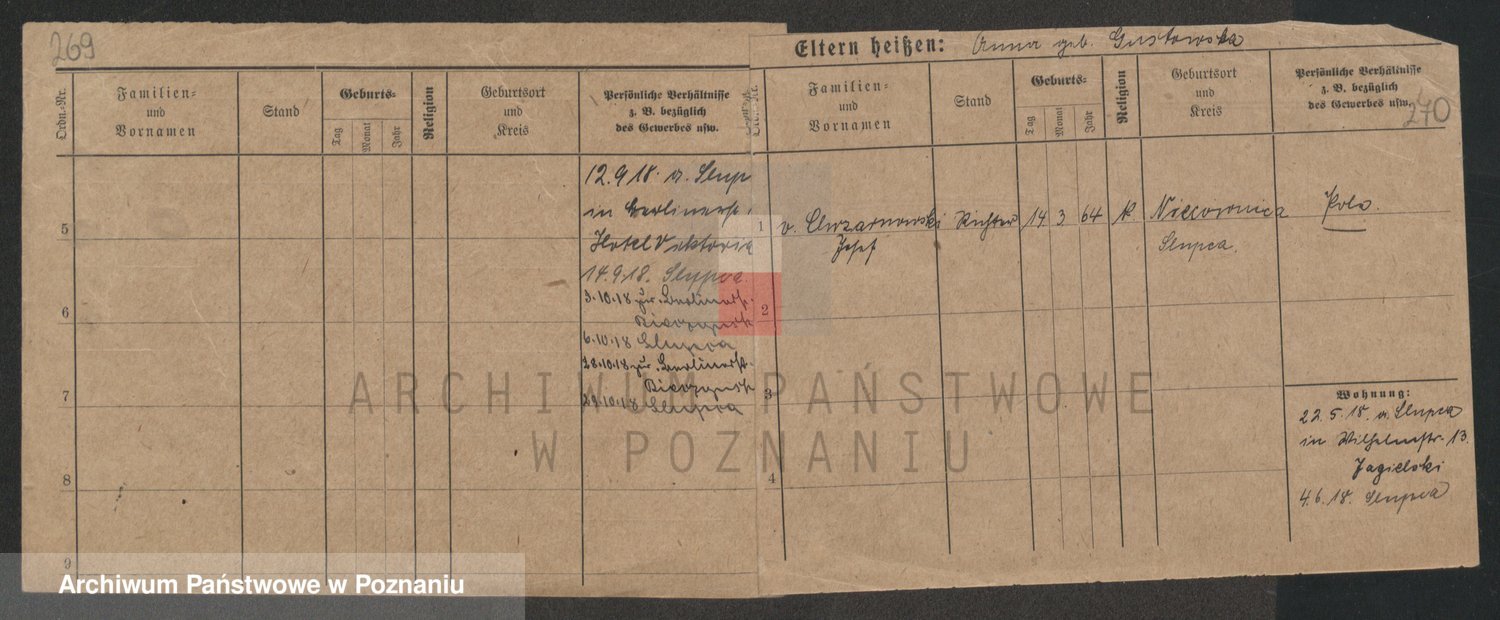 269
Ordn.-Nr.
Familien-
und
Vornamen
Stand
Geburts-
Tag
Monat
Jahr
Religion
Geburtsort
und
Kreis
Persönliche Verhältnisse
z. B. bezüglich
des Gewerbes usw.
12.9.18. a. Slup
in Berlinerst.
Hotel Viktoria
14.9.18. Slupca
3.10.18 zur. Berlinerst.
6.10.18 Slupca
28.10.18 zur. Berlinerst.
29.10.18 Slupca
5
6
7
8
9
Eltern heißen: Anna geb. Gustowska
Familien-
und
Vornamen
Stand
Geburts-
Tag
Monat
Jahr
Religion
Geburtsort
und
Kreis
Persönliche Verhältnisse
z. B. bezüglich
des Gewerbes usw.
270
1 v. Chrzarnowski Richter 14 3 64 k Pole.
Josef Slupca.
2
3
4
Wohnung:
22.5.18. a. Slupca
in Wilhelmstr. 13.
Jagielski
4.6.18. Slupca
ARCHIWUM PAŃSTWOWE
W POZNANIU
Archiwum Państwowe w Poznaniu